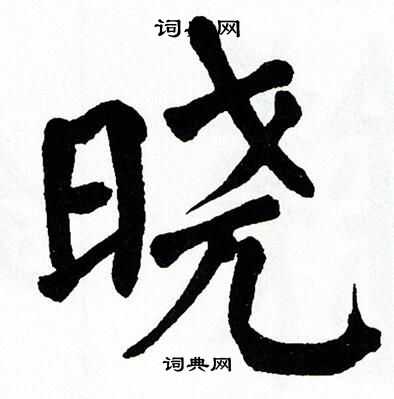 词典网
晓
词典网